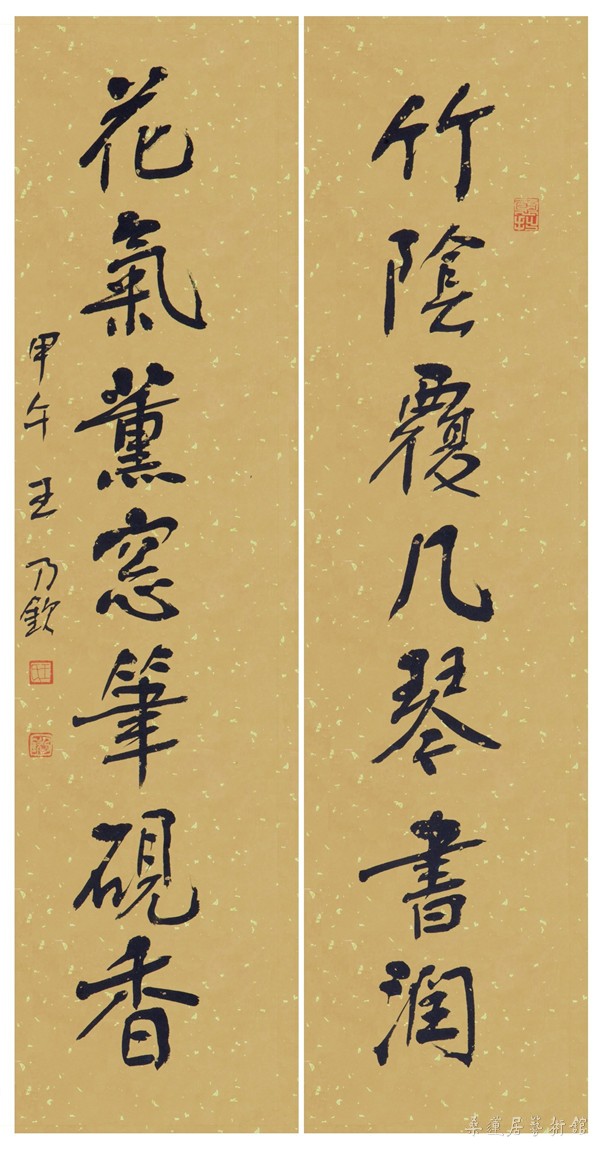 竹陰覆几琴書潤
花氣薰窓筆硯香
甲午 王乃欽